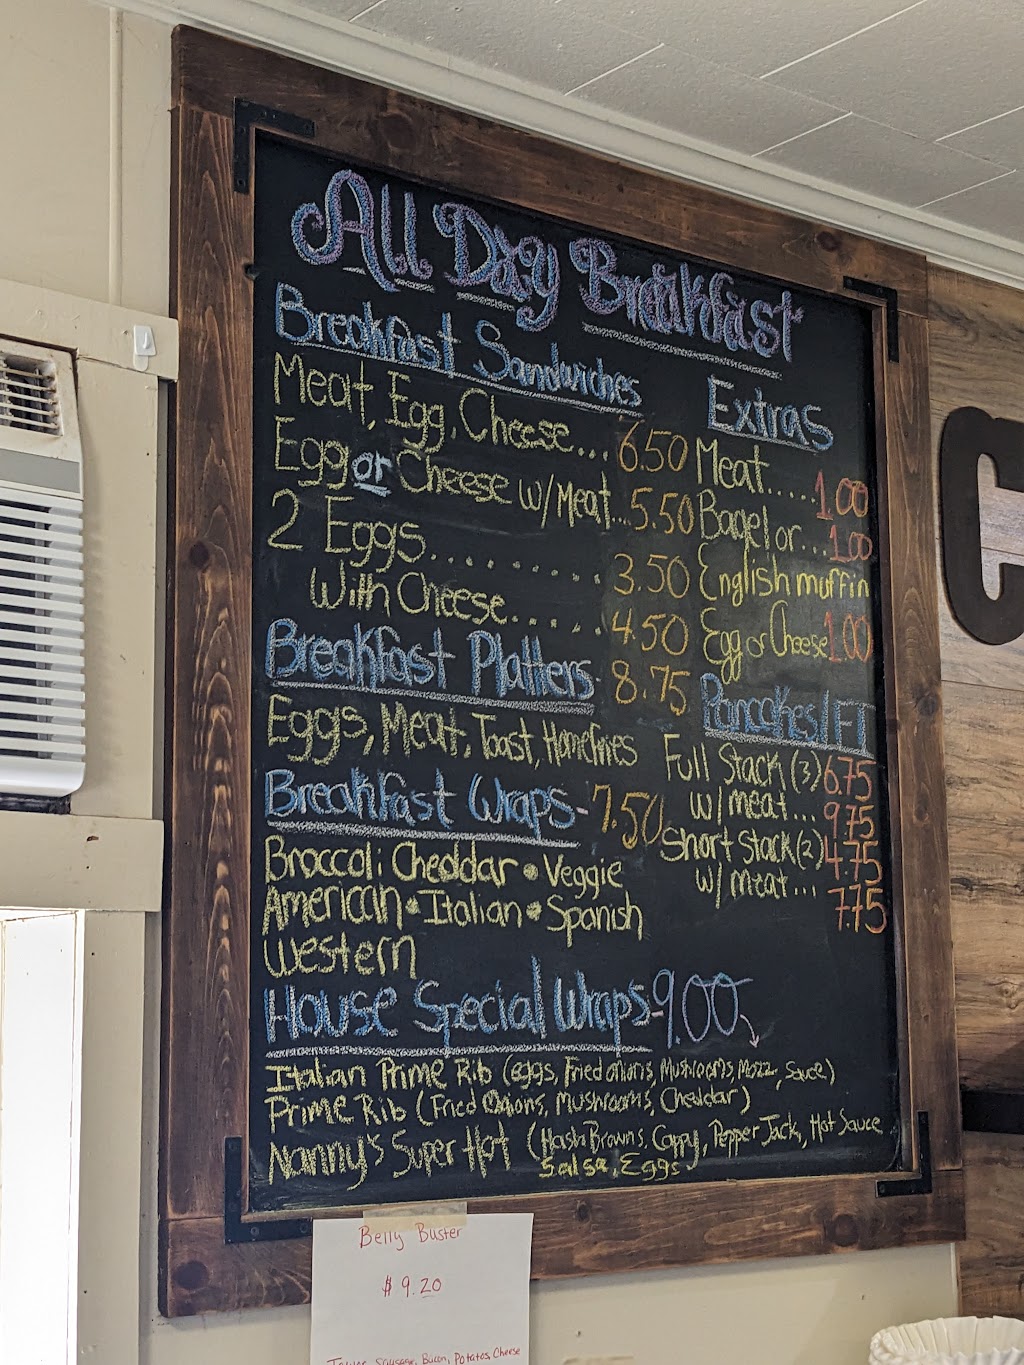 All Day Breakfast
Breakfast Sandwiches
Meat, Egg, Cheese... 6.50
Egg or Cheese w/Meat... 5.50
2 Eggs.......... 3.50
With Cheese...... 4.50
Breakfast Platters- 8.75
Eggs, Meat, Toast, Homefries
Breakfast Wraps- 7.50
Broccoli Cheddar • Veggie
American • Italian • Spanish
Western
Extras
Meat..... 1.00
Bagel or... 1.00
English muffin
Egg or Cheese 1.00
Pancakes/FT
Full Stack (3) 6.75
w/meat... 9.75
Short Stack (2) 4.75
w/meat... 7.75
House Special Wraps- 9.00
Italian Prime Rib (eggs, Fried onions, Mushrooms, Mozz, Sauce)
Prime Rib (Fried Onions, Mushrooms, Cheddar)
Nanny's Super Hot (Hash Browns, Cappy, Pepper Jack, Hot Sauce
Salsa, Eggs
C
Belly Buster
$ 9.20
Sausage, Bacon, Potatos, Cheese